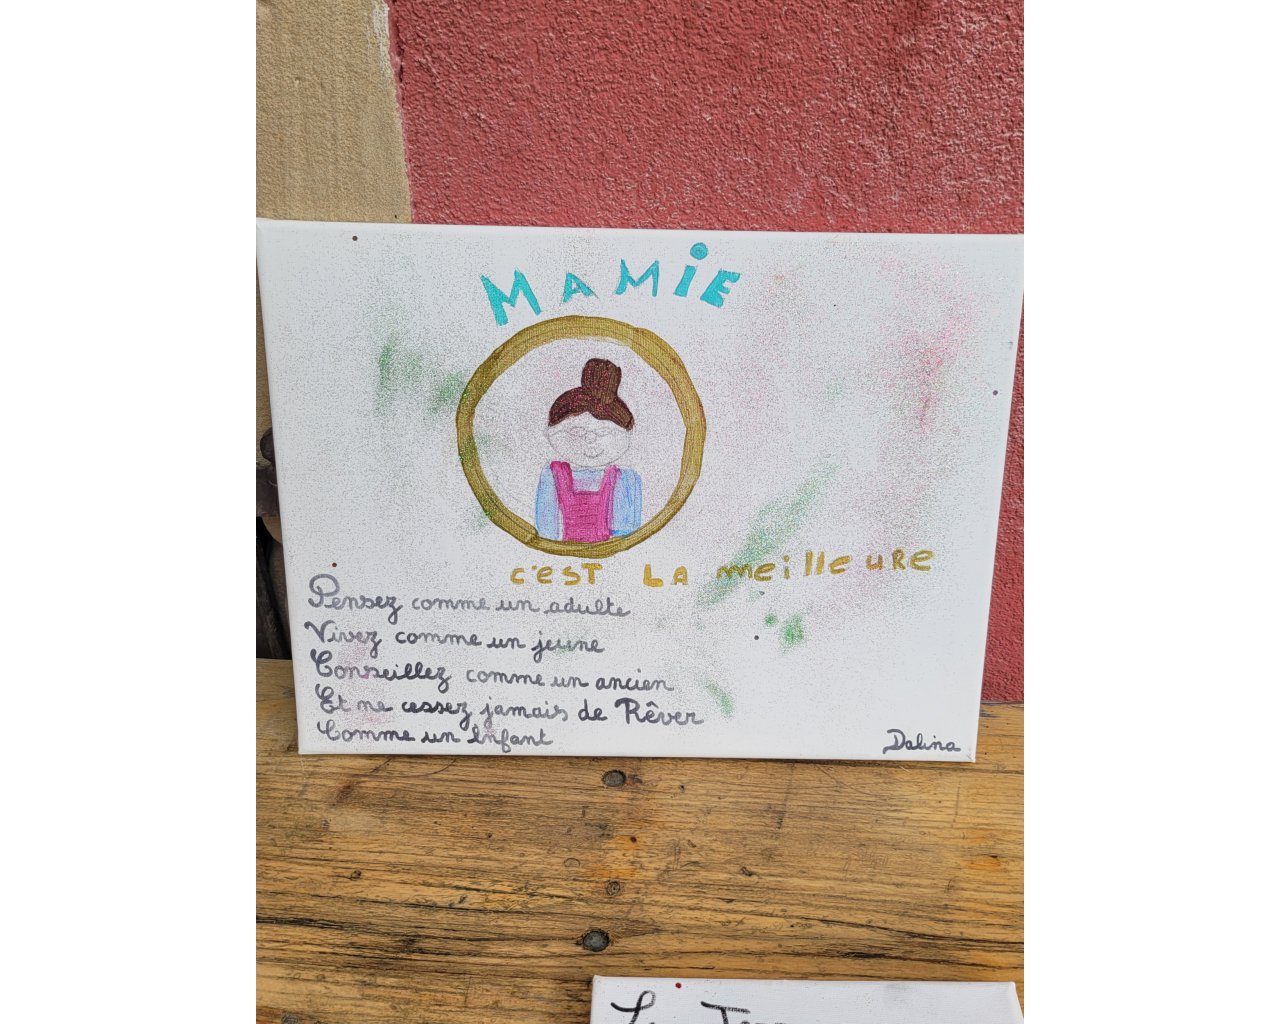 MAMiE
c'esT LA meilleuRe
Pensez comme un adulte
Vivez comme un jeune
Conseillez comme un ancien
Et ne cessez jamais de Rêver
Comme un Enfant
Dalina